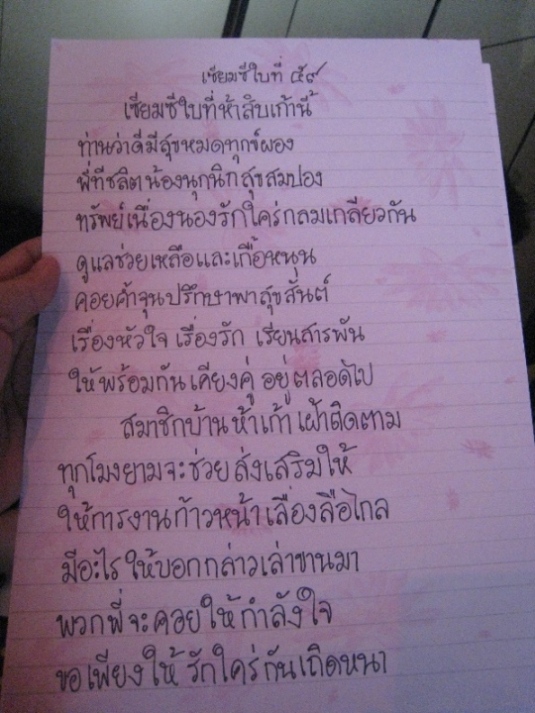 เซียมซีใบที่ ๕๙
เซียมซีใบที่ห้าสิบเก้านี้
ท่านว่าดีมีสุขหมดทุกข์ผอง
พี่ทีชลิต น้องนุกนิก สุขสมปอง
ทรัพย์เนื่องนองรักใคร่กลมเกลียวกัน
ดูแลช่วยเหลือและเกื้อหนุน
คอยค้ำจุนปรึกษาพาสุขสันต์
เรื่องหัวใจ เรื่องรัก เรียนสารพัน
ให้พร้อมกัน เคียงคู่ อยู่ตลอดไป
สมาชิกบ้านห้าเก้า เฝ้าติดตาม
ทุกโมงยามจะช่วย ส่งเสริมให้
ให้การงานก้าวหน้าเลื่องลือไกล
มีอะไร ให้บอกกล่าวเล่าขานมา
พวกพี่จะคอยให้กำลังใจ
ขอเพียงให้ รักใคร่กันเถิดหนา